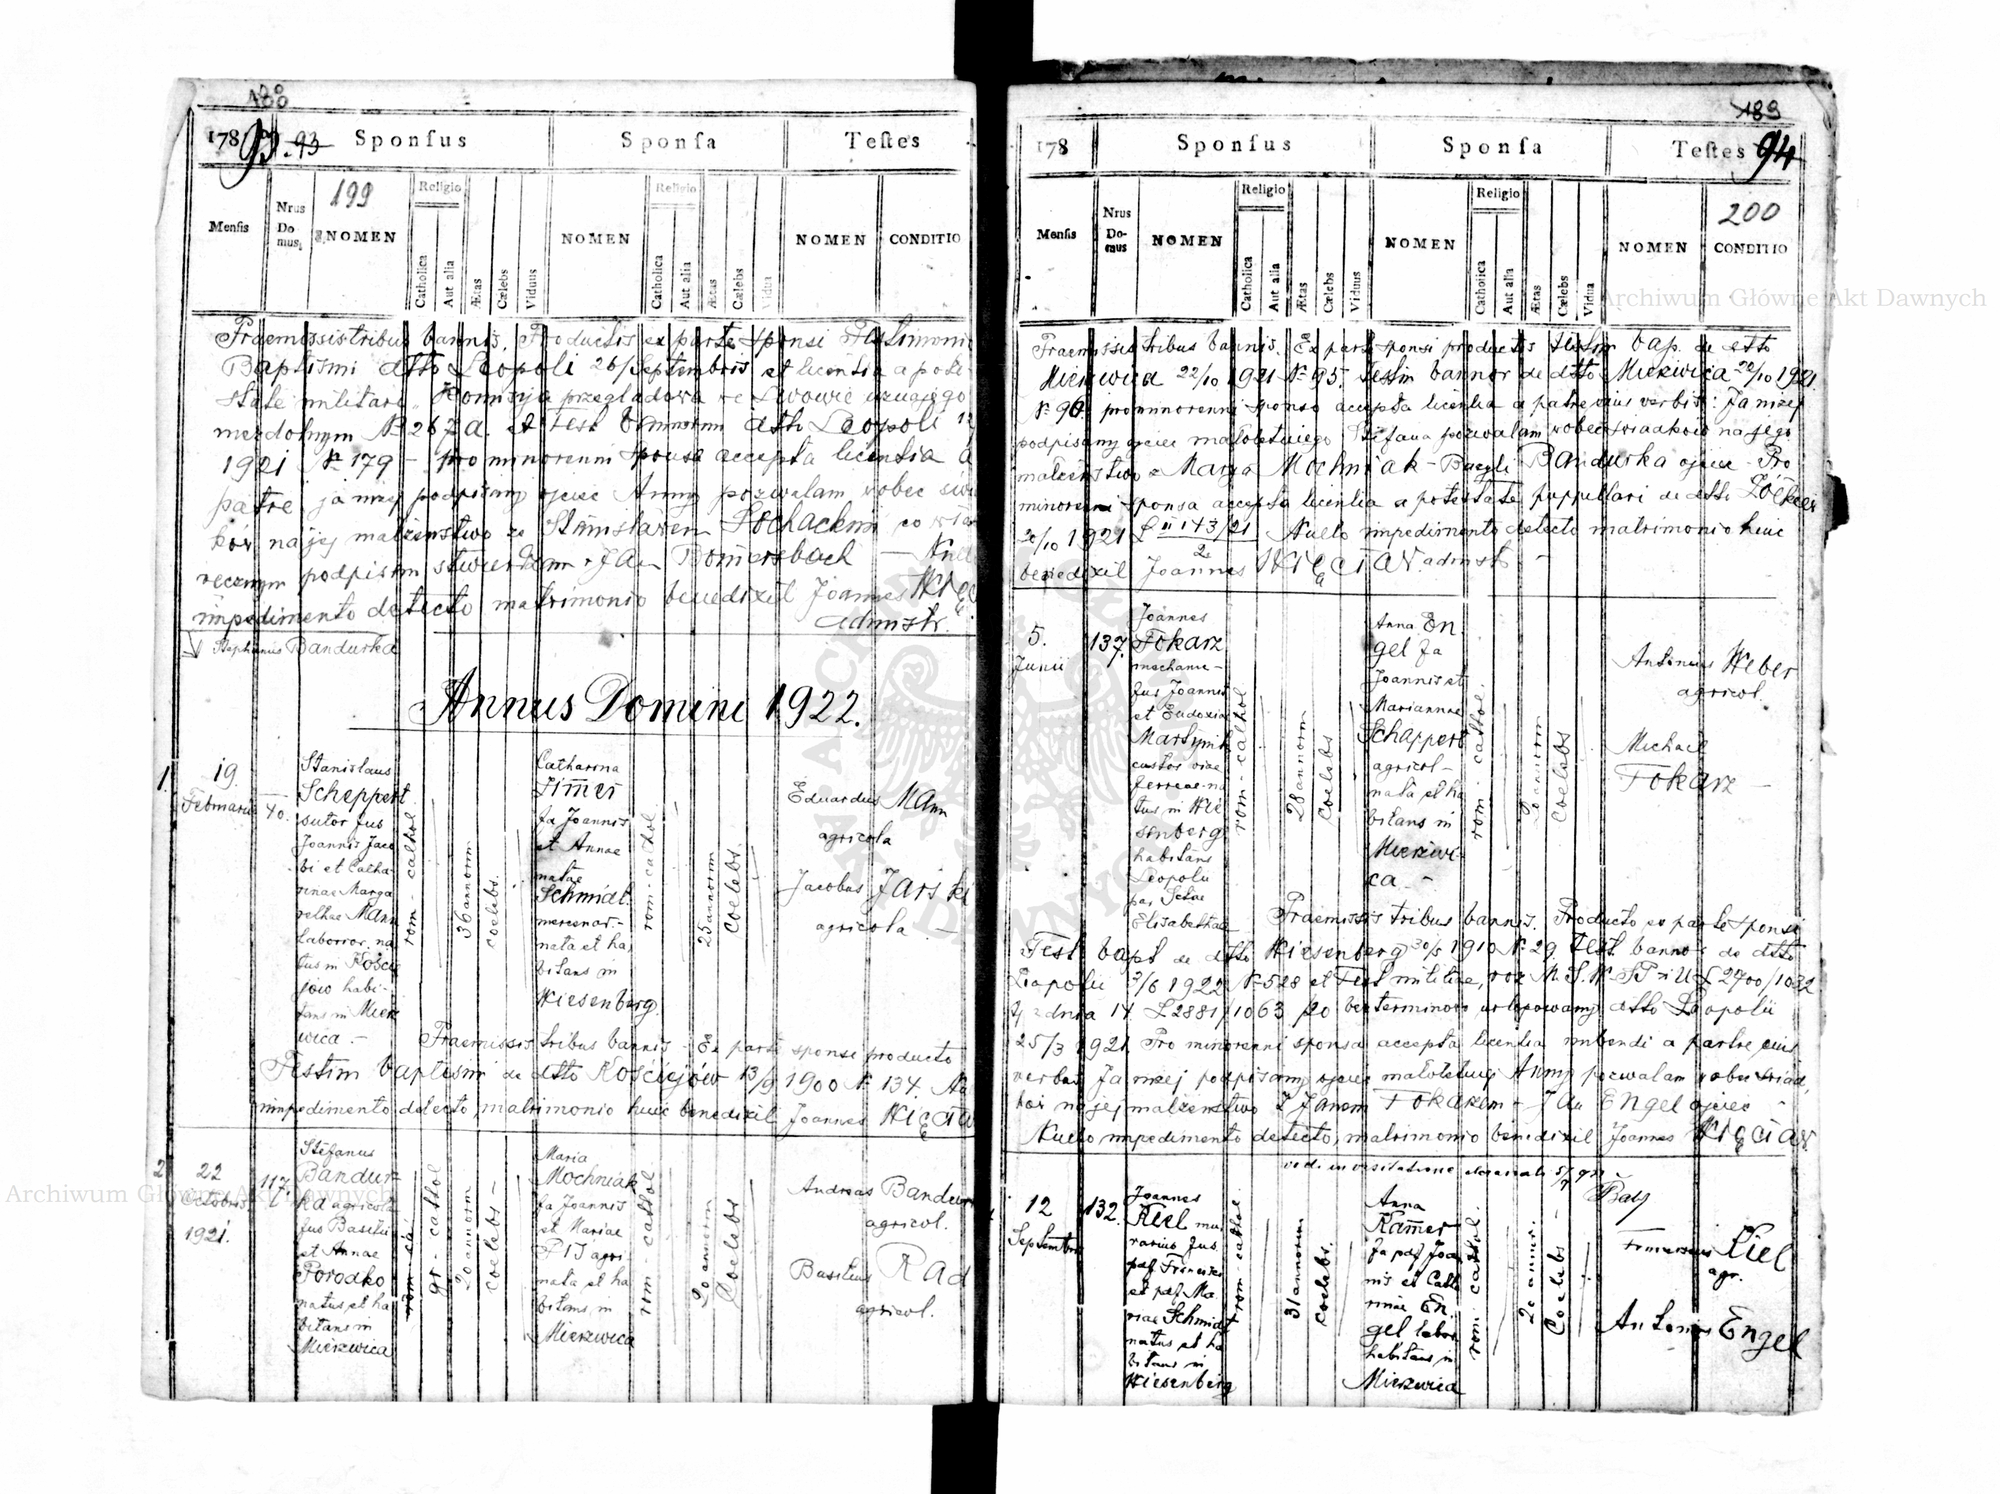 188
178 93. 93 Sponſus Sponſa Teſtes
199
Menſis Nrus Domus NOMEN Religio Catholica Aut alia Ætas Cælebs Viduus NOMEN Religio Catholica Aut alia Ætas Cælebs Vidua NOMEN CONDITIO
Praemissis tribus bannis. Productis ex parte sponsi Testimonio
Baptismi dtto Leopoli 26/Septembris et licentia a pote
state militari Komisja przeglądowa we Lwowie uznającego
niezdolnym № 267a. et Test bannorum dtto Leopoli 12
1921 № 179 – pro minorenni sponsa accepta licentia a
patre ja niżej podpisany ojciec Anny pozwalam wobec świa
ków na jej małżeństwo ze Stanisławem Sochackim co własno
ręcznym podpisem stwierdzam Jan Bomersbach – Nullo
impedimento detecto matrimonio benedixil Joannes Więc
admistr.
Stephanus Bandurka
Annus Domini 1922.
1.
19
Februarii
40.
Stanislaus
Scheppert
sutor fus
Joannis Jaco
bi et Catha
rinae Marga
rethae Mann
laboror. na
tus in Kości
jów habi-
tans in Mierz
wica –
rom-cathol
36 annorum
coelebs.
Catharina
Zim̄er
fa Joannis
et Annae
natae
Schmidt
mercenar.-
nata et ha
bitans in
Wiesenberg
rom-cathol
25 annorum
Coelebs.
Eduardus Mann
agricola
Jacobus Jarski
agricola –
Praemissis tribus bannis – Ex parte sponsi producto
Testim baptismi de dtto Kościejów 13/9 1900 № 134. Nu
impedimento detecto matrimonio huic benedixil Joannes Więcław
2
22
Octobris
1921.
117
Stefanus
Bandur
ka agricola
fus Basilii
et Annae
Porodko
natus et ha
bitans in
Mierzwica
rom-ca
gr-cathol
20 annorum
Coelebs –
Maria
Mochniak
fa Joannis
et Mariae
agri
nata et ha
bitans in
Mierzwica
rom-cathol
20 annorum
Coelebs
Andreas Bandurka
agricol.
Basilius Rad
agricol.
189
178 Sponſus Sponſa Teſtes 94
200
Menſis Nrus Domus NOMEN Religio Catholica Aut alia Ætas Cælebs Viduus NOMEN Religio Catholica Aut alia Ætas Cælebs Vidua NOMEN CONDITIO
Praemissis tribus bannis. Ex parte sponsi productis testim bap. de dtto
Mierzwica 22/10 1921 № 95. testim bannor de dtto Mierzwica 22/10 1921.
№ 90. pro minorenni sponso accepta licentia a patre eius verbis: Ja niżej
podpisany ojciec małoletniego Stefana pozwalam wobec świadków na jego
małżeństwo z Maryą Mochniak – Bazyli Bandurka ojciec – Pro
minorenni sponsa accepta licentia a potestate puppillari de dtto Żółkiew
20/10 1921 L II 143/21 Nullo impedimento detecto matrimonio huic
2
benedixil Joannes Więcław. admstr –
5.
Junii
137.
Joannes
Tokarz
mechanic-
fus Joannis
et Eudoxia
Martynik
custos viae
ferreae-na
tus in Wie
senberg
habitans
Leopolii
par Sctae
Elisabethae
rom-cathol
28 annorum
Coelebs
Anna En
gel fa
Joannis et
Mariannae
Schappert
agricol-
nata et ha
bitans in
Mierzwi-
ca –
rom-cathol.
20 annorum
Coelebs
Antonius Weber
agricol.
Michael
Tokarz –
Praemissis tribus bannis. Producto ex parte sponsi
Test bapt de dtto Wiesenberg 30/5 1910 № 29 Test bannor de dtto
Leopolii 3/6 1922 № 528 et Test militiae, roz M. S. W. L 2700/1032
z dnia 14 L 2881/1063 20 bezterminowo urlopowany dtto Leopolii
25/3 1921 Pro minorenni sponsa accepta licentia nubendi a patre eius
verbis Ja niżej podpisany ojciec małoletniej Anny pozwalam wobec świad,
ków na jej małżeństwo z Janem Tokarzem – Jan Engel ojciec –
Nullo impedimento detecto, matrimonio benedixil Joannes Więcław
vidi in visitatione decanali
12
Septembris
132.
Joannes
Kiel mu
rarius fus
pdf Francisci
et pdf Ma
riae Schmidt
natus et ha
bitans in
Wiesenberg
rom-cathol
31 annorum
Coelebs.
Anna
Kam̄er
fa pdf Joan
nis et Catha
rinae En
gel labor
habitans in
Mierzwica
rom-cathol.
20 annor.
Coelebs –
Franciscus Kiel
agr.
Antonius Engel
Archiwum Główne Akt Dawnych
Archiwum Główne Akt Dawnych